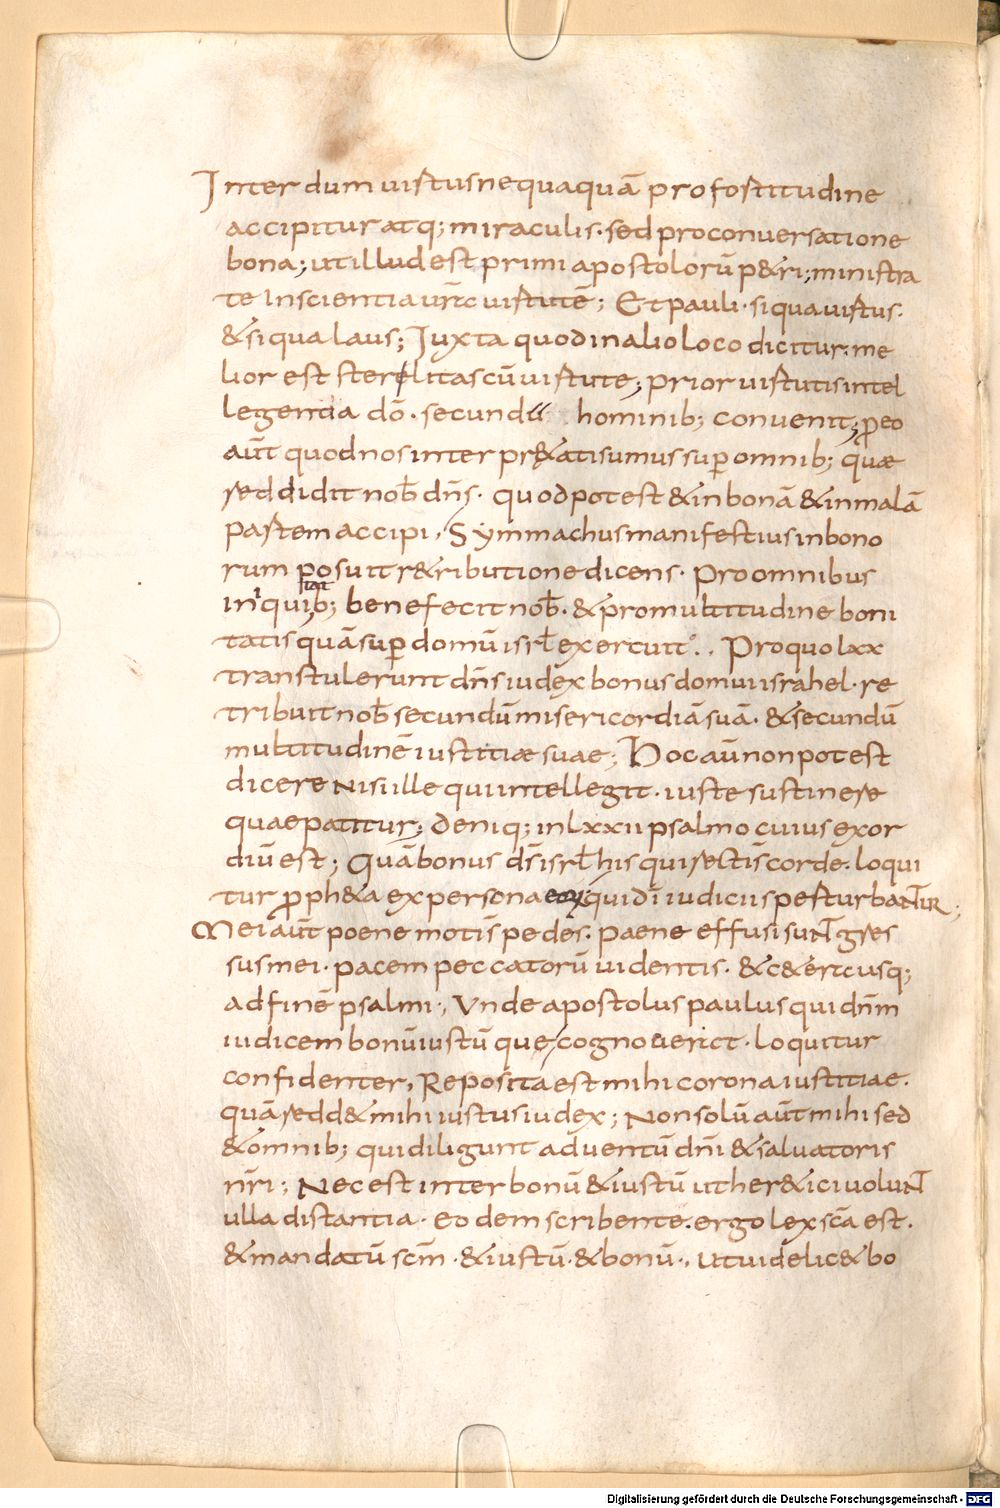 Inter dum uirtus nequaquā pro fortitudine
accipitur atq; miraculis · sed pro conuersatione
bona; ut illud est primi apostolorū p&ri; ministra
te In scientia ur̄c uirtutē; Et pauli · si qua uirtus ·
& si qua laus; Iuxta quod in alio loco dicitur · me
lior est sterelitas cū uirtute; prior uirtutis intel
legentia dō · secundū hominib; conuenit; p̱eo
aūt quod nos inter pr&ati sumus sup̱ omnib; quæ
reddidit nob̄ dn̄s · quod potest & in bonā & in malā
partem accipi · Symmachus manifestius in bono
rum posuit r&ributione dicens · Pro omnibus
in quib; benefecit nob̄ · & pro multitudine boni
tatis quā sup̱ domū isrl̄ exercuit · Pro quo lxx
transtulerunt dn̄s iudex bonus domui israhel · re
tribuit nob̄ secundū misericordiā suā · & secundū
multitudinē iustitiæ suae; Hoc aūt non potest
dicere Nisi ille qui intellegit · iuste sustinere
quae patitur; deniq; in lxxii psalmo cuius exor
diū est; Quā bonus ds̄ isrl̄ his qui rectis̄ corde · loqui
tur p̱ph&a ex persona qui dī iudiciis perturbaNTUR;
Mei aūt poene motis̄ pedes̄ · paene effusi suNT gres
sus mei · pacem peccatorū uidentis · & c&erɩcusq;
ad finē psalmi · Vnde apostolus paulus qui dn̄m
iudicem bonū iustū que cognouerict · loquitur
confidenter, Reposita est mihi corona iustitiae ·
quā redd& mihi iustus iudex; Non solū aūt mihi sed
& omnib; qui diligunt aduentū dn̄i & saluatoris
nr̄i; Nec est inter bonū & iustū ut her&ici uoluNT
ulla distantia · eodem scribente · ergo lex sc̄a est ·
& mandatū sc̄m · & iustū · & bonū · Ut uidelic& bo
Digitalisierung gefördert durch die Deutsche Forschungsgemeinschaft - DFG